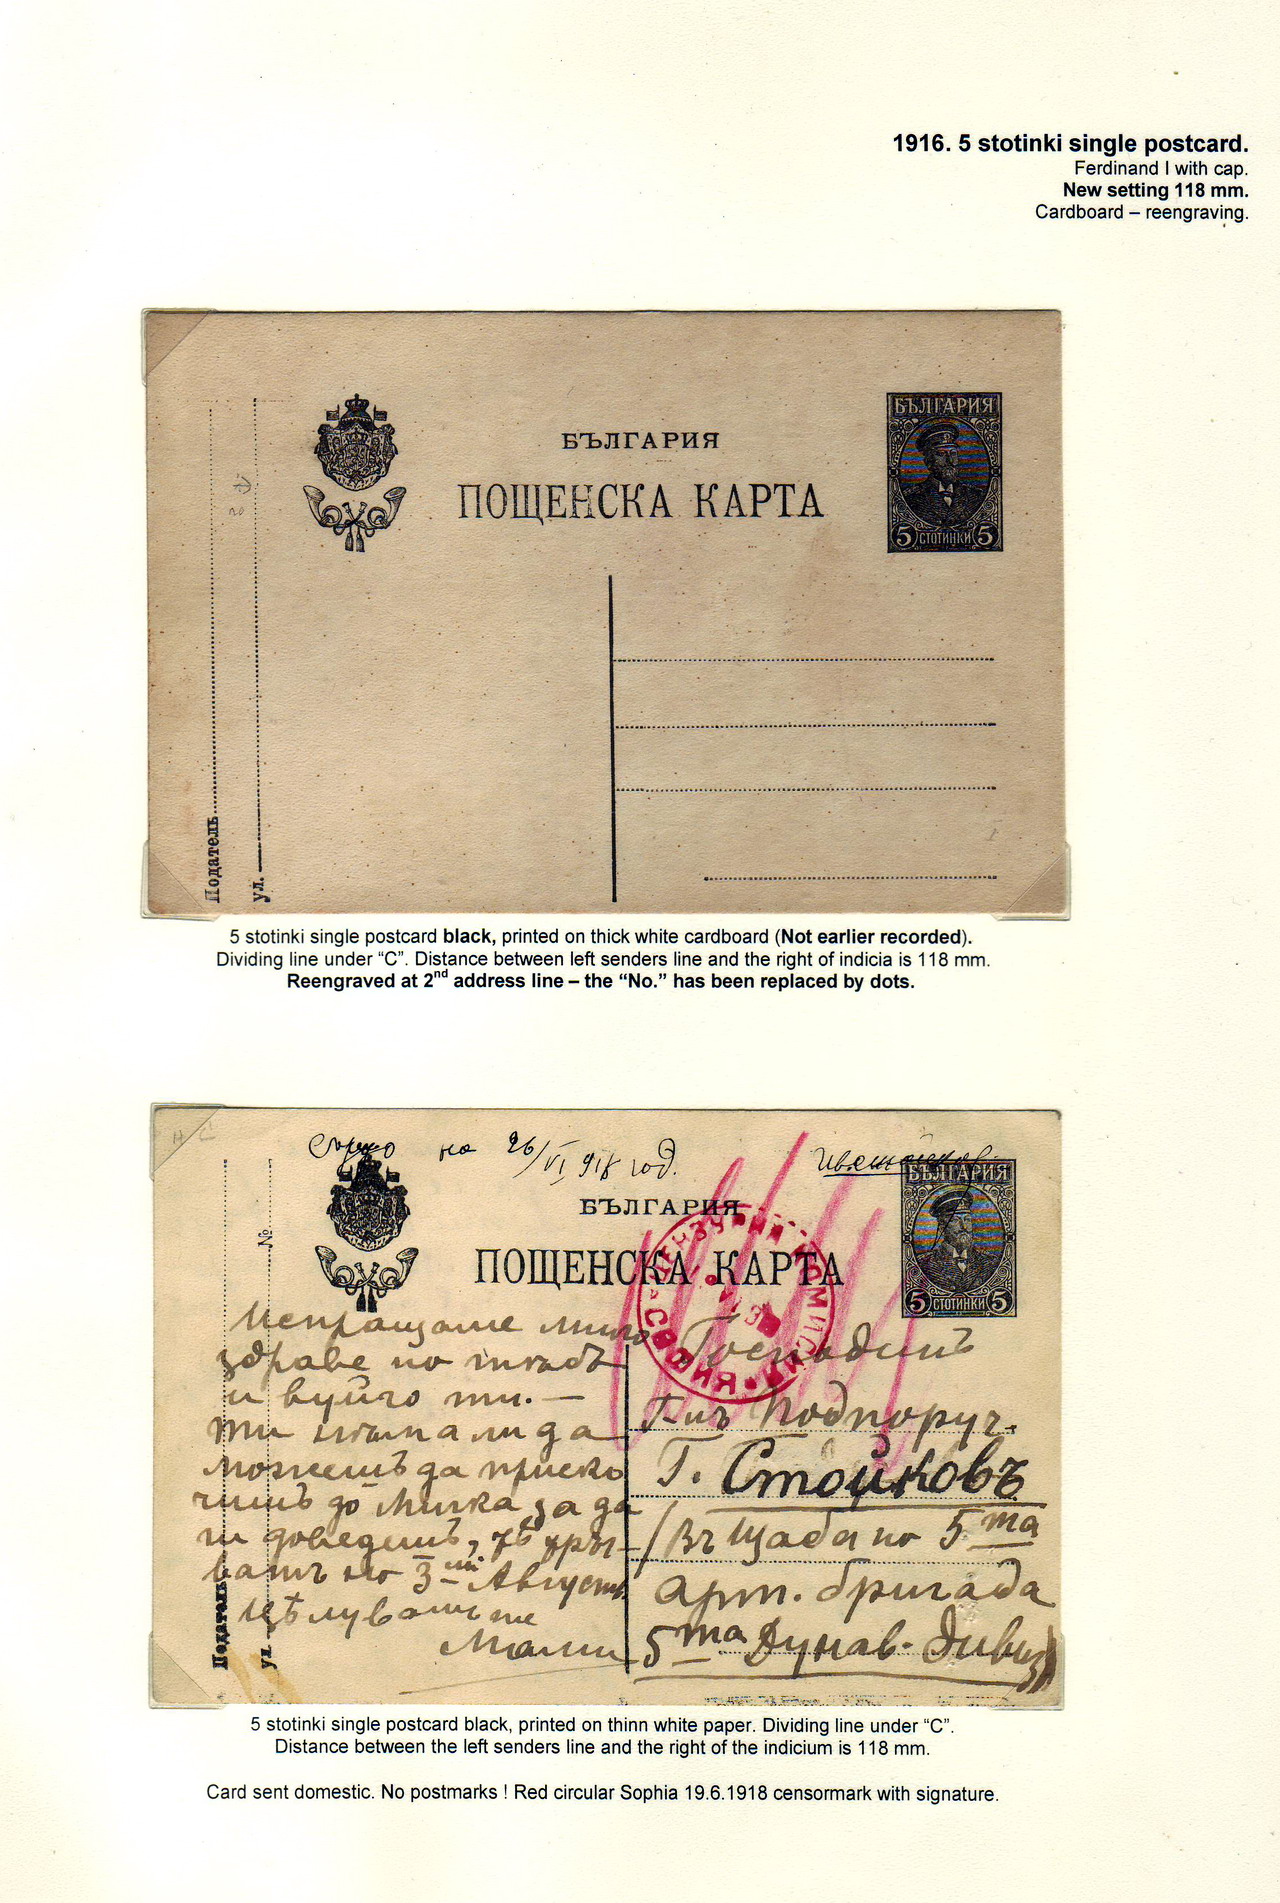 1916. 5 stotinki single postcard.
Ferdinand I with cap.
New setting 118 mm.
Cardboard – reengraving.
БЪЛГАРИЯ
БЪЛГАРИЯ
ПОЩЕНСКА КАРТА
5 СТОТИНКИ 5
Податель
ул.
5 stotinki single postcard black, printed on thick white cardboard (Not earlier recorded).
Dividing line under “C”. Distance between left senders line and the right of indicia is 118 mm.
Reengraved at 2nd address line – the “No.” has been replaced by dots.
на 26/VI 918 год.
БЪЛГАРИЯ
БЪЛГАРИЯ
ПОЩЕНСКА КАРТА
5 СТОТИНКИ 5
№
СОФИЯ
Изпращаме много
здраве по
и вуйчо ти. —
ти да
можешъ да приско
чишъ до Милка за да
ни доведешъ,
3 Августъ
Цѣлувамъ те
Мами
Господинъ
Г-нъ Подпоруч.
Г. Стойковъ
/Въ Щаба по 5та
арт. бригада
5та Дунав. Дивиз)
Податель
ул.
5 stotinki single postcard black, printed on thinn white paper. Dividing line under “C”.
Distance between the left senders line and the right of the indicium is 118 mm.
Card sent domestic. No postmarks ! Red circular Sophia 19.6.1918 censormark with signature.